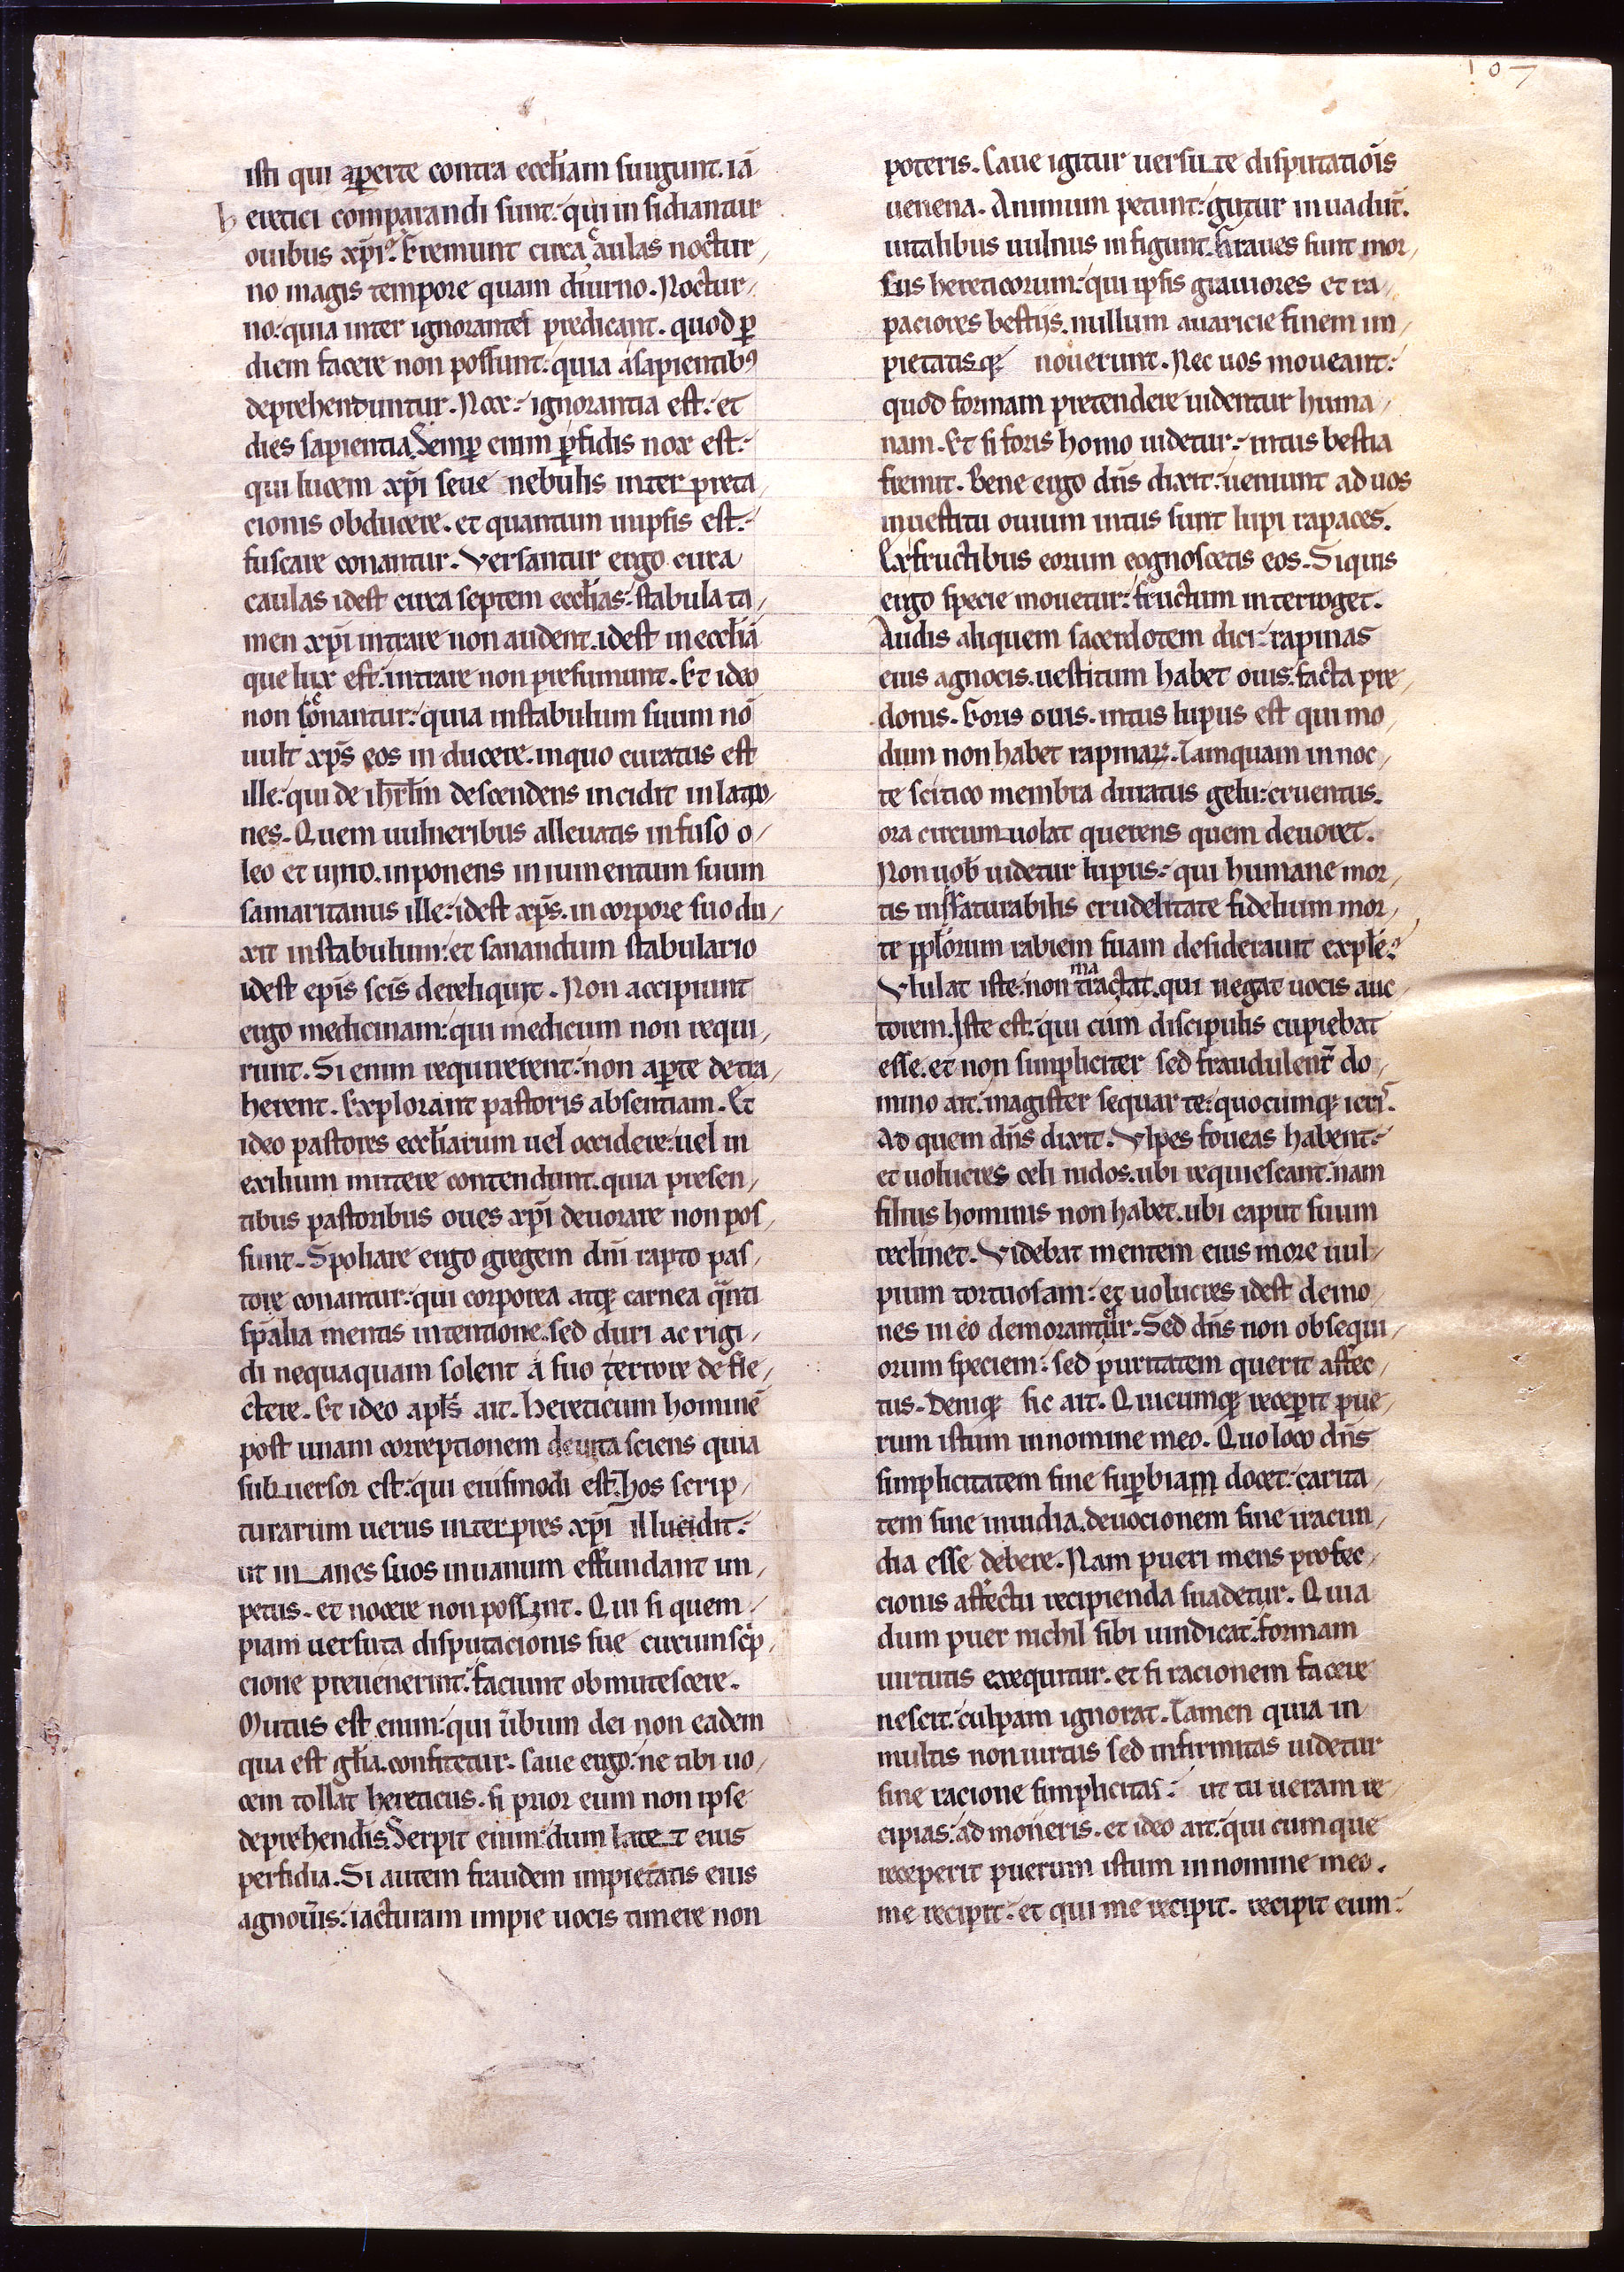 107
isti qui aperte contra eccłiam surgunt. iā
heretici comparandi sunt: qui insidiantur
ouibus xp̄i. Fremunt circa caulas noctur-
no magis tempore quam diurno. Noctur-
no: quia inter ignorantes predicant. quod ꝑ
diem facere non possunt: quia a sapientibꝰ
deprehenduntur. Nox: ignorantia est: et
dies sapientia. Semꝑ enim ꝑfidis nox est:
qui lucem xp̄i seue nebulis interpreta-
cionis obducere. et quantum in ipsis est:
fuscare conantur. Versantur ergo circa
caulas idest circa septem eccłias: stabula ta-
men xp̄i intrare non audent. idest in eccłiā
que lux est. intrare non presumunt. Et ideo
non sanantur: quia in stabulum suum nō
uult xp̄s eos inducere. in quo curatus est
ille: qui de ihrłm descendens incidit in latro-
nes. Quem uulneribus alleuatis infuso o-
leo et uino. inponens in iumentum suum
samaritanus ille: idest xp̄s. in corpore suo du-
xit in stabulum: et sanandum stabulario
idest epīs scīs dereliquit. Non accipiunt
ergo medicinam: qui medicum non requi-
runt. Si enim requirerent: non aꝑte detra-
herent. Explorant pastoris absentiam. Et
ideo pastores eccłiarum uel occidere: uel in
exilium mittere contendunt. quia presen-
tibus pastoribus oues xp̄i deuorare non pos-
sunt. Spoliare ergo gregem dn̄i rapto pas-
tore conantur: qui corporea atqꝫ carnea q̄nti
sp̄alia mentis intentione. sed duri ac rigi-
di nequaquam solent a suo terrore defle-
ctere. Et ideo apłs ait. hereticum hominē
post unam correptionem deuita sciens quia
subuersor est: qui eiusmodi est. hos scrip-
turarum uerus interpres xp̄i illucidit:
ut inanes suos in uanum effundant im-
petus. et nocere non possint. Qui si quem-
piam uersuta disputacionis sue circumscp̄-
cione preuenerint: faciunt obmutescere.
Mutus est enim: qui ūbum dei non eadem
qua est głia. confitetur. caue ergo: ne tibi uo-
cem tollat hereticus. si prior eum non ipse
deprehendis. Serpit enim: dum latet eius
perfidia. Si autem fraudem impietatis eius
agnoūis: iacturam impie uocis timere non
poteris. Caue igitur uersute disputatiōis
uenena. Animum petunt: gutur inuadūt.
uitalibus uulnus infigunt. Graues sunt mor-
sus hereticorum: qui ipsis grauiores et ra-
paciores bestijs. nullum auaricie finem im-
pietatisqꝫ nouerunt. Nec uos moueant:
quod formam pretendere uidentur huma-
nam. Et si foris homo uidetur: intus bestia
fremit. Bene ergo dn̄s dixit: ueniunt ad uos
in uestitu ouium intus sunt lupi rapaces.
Ex fructibus eorum cognoscetis eos. Si quis
ergo specie mouetur: fructum interroget.
Audis aliquem sacerdotem dici: rapinas
eius agnocis. uestitum habet ouis. facta pre-
donis. Foris ouis. intus lupus est qui mo-
dum non habet rapinaꝝ. Tamquam in noc-
te scitico membra duratus gelu: cruentus.
ora circumuolat querens quem deuoret.
Non uob̄ uidetur lupus: qui humane mor-
tis insaturabilis crudelitate fidelium mor-
te ppłorum rabiem suam desiderauit explē?
Vlulat iste: non
ma
tractat. qui negat uocis auc-
torem. Iste est: qui cum discipulis cupiebat
esse. et non simpliciter sed fraudulent̄ do-
mino ait. magister sequar te: quocumqꝫ ieris.
Ad quem dn̄s dixit. Vlpes foueas habent:
et uolucres celi nidos. ubi requiescant. nam
filius hominis non habet. ubi caput suum
reclinet. Videbat mentem eius more uul-
pium tortuosam: et uolucres idest demo-
nes in eo demorantur. Sed dn̄s non obsequi-
orum speciem: sed puritatem querit affec-
tus. Deniqꝫ sic ait. Quicumqꝫ receꝑit pue-
rum istum in nomine meo. Quo loco dn̄s
simplicitatem sine suꝑbiam docet: carita-
tem sine inuidia. deuocionem sine iracun-
dia esse debere. Nam pueri mens profec-
cionis affectu recipienda suadetur. Quia
dum puer nichil sibi uindicat: formam
uirtutis exequitur. et si racionem facere
nescit: culpam ignorat. Tamen quia in
multis non uirtus sed infirmitas uidetur
sine racione simplicitas: ut tu ueram re-
cipias: admoneris. et ideo ait: qui cumque
receperit puerum istum in nomine meo.
me recipit: et qui me recipit. recipit eum: